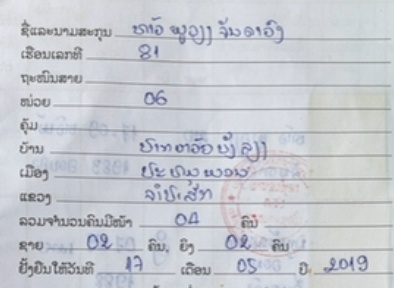 ຊື່ແລະນາມສະກຸນ ທ້າວ ພູວຽງ ຈັນດາວົງ
ເຮືອນເລກທີ 81
ຖະໜົນສາຍ
ໜ່ວຍ 06
ຄຸ້ມ
ບ້ານ
ເມືອງ ປະທຸມພອນ
ແຂວງ ຈຳປາສັກ
ລວມຈຳນວນຄົນມີໜ້າ 04 ຄົນ
ຊາຍ 02 ຄົນ, ຍິງ 02 ຄົນ
ຢັ້ງຢືນໃຫ້ວັນທີ 17 ເດືອນ 05 ປີ 2019